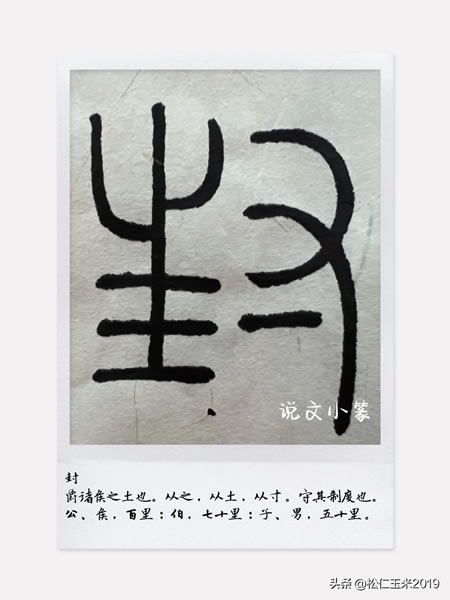 封
说文小篆
封
爵诸侯之土也。从之，从土，从寸。守其制度也。
公、侯，百里；伯，七十里；子、男，五十里。
头条 @松仁玉米2019